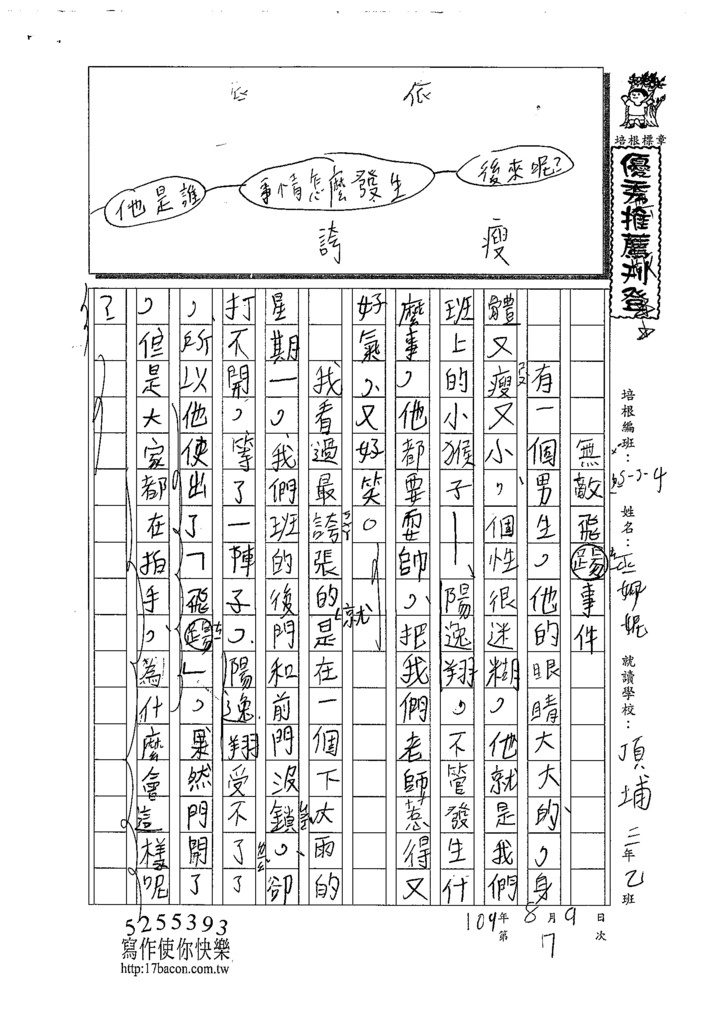 依
後來呢?
事情怎麼發生
他是誰
瘦
誇
培根標章
優秀推薦刊登
培根編班:
姓名:
妮
就讀學校:頂埔二年乙班
無敵飛踢事件
有一個男生,他的眼睛大大的,身
體又瘦又小,個性很迷糊,他就是我們
班上的小猴子—陽逸翔,不管發生什
麼事,他都要耍帥,把我們老師惹得又
好氣,又好笑。
我看過最誇張的就是在一個下大雨的
星期一,我們班的後門和前門沒鎖,卻
打不開,等了一陣子,陽逸翔受不了了
,所以他使出了「飛踢」,果然門開了
,但是大家都在拍手,為什麼會這樣呢
?
109年8月9日
第7次
5255393
寫作使你快樂
http:17bacon.com.tw